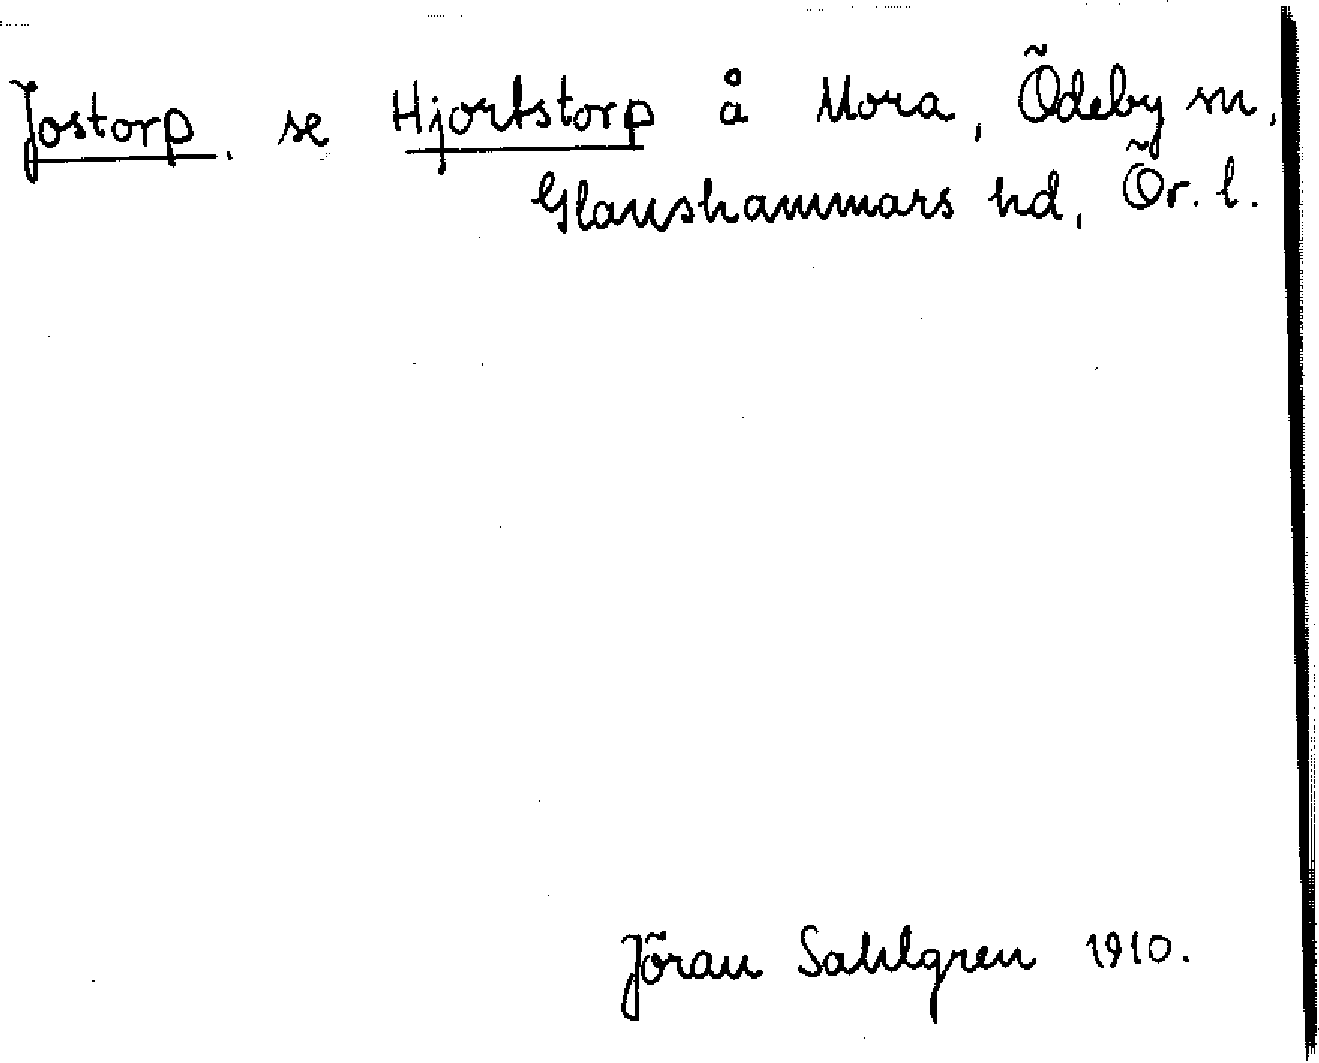 Jostorp, se Hjortstorp å Mora, Ödeby sn,
Glanshammars hd, Ör. l.
Jöran Sahlgren 1910.